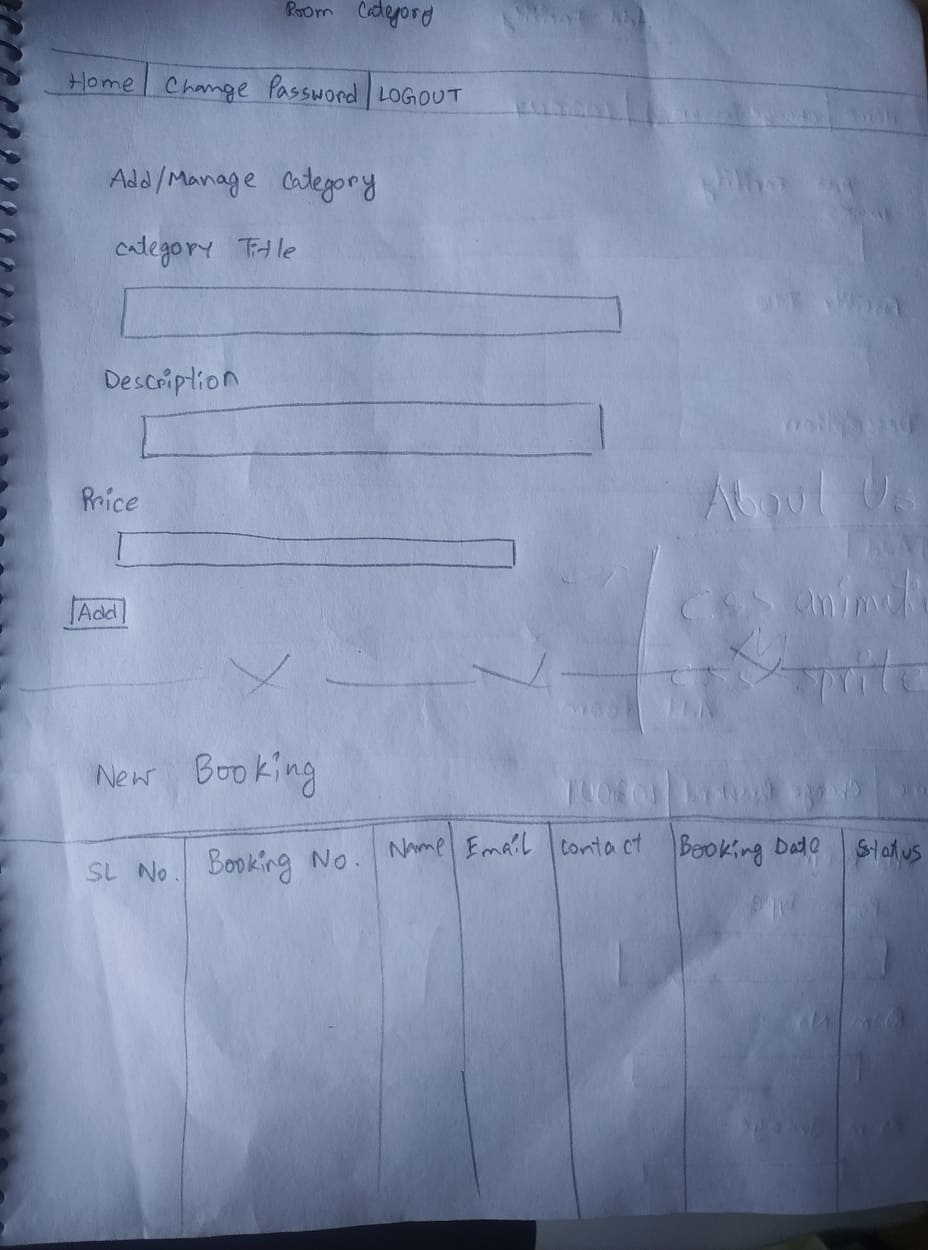 Room Category
Home | Change Password | LOGOUT
Add/Manage Category
Category Title
Description
Price
Add
New Booking
SL No. | Booking No. | Name | Email | Contact | Booking Date | Status
About Us
css animati
css sprite